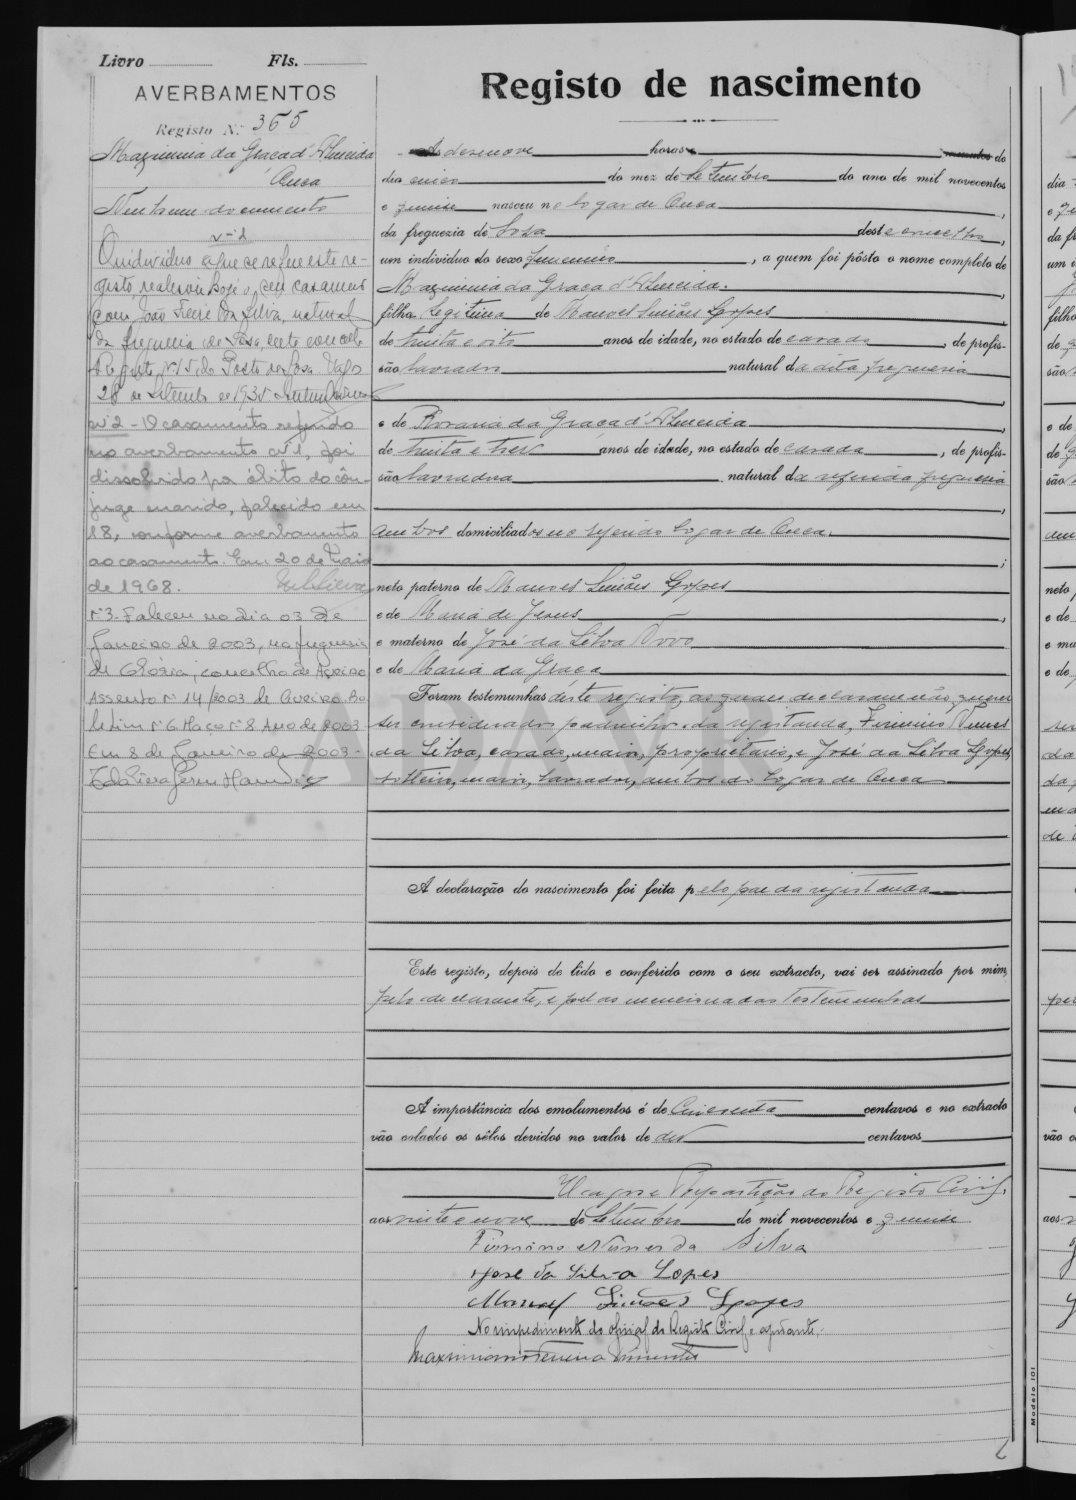 Livro Fls.
AVERBAMENTOS
Registo N.º 365
Maximinia da Graça d'Almeida
Ouca
Nenhum documento
nº 1
O individuo a que se refere este re-
gisto, realisou hoje o seu casamento
com João Freire da Silva, natural
da freguesia de Sosa, deste concelho
Registo nº 15 do Posto de Sosa. Vagos
28 de Setembro de 1935
nº 2 - O casamento referido
no averbamento nº 1, foi
dissolvido por óbito do côn-
juge marido, falecido em
18, conforme averbamento
ao casamento. Em 20 de Maio
de 1968.
nº 3. Faleceu no dia 03 de
Janeiro de 2003, na freguesia
de Glória, concelho de Aveiro
Assento nº 14/2003 de Aveiro. Bo-
letim nº 6 Maço nº 8 Ano de 2003
Em 8 de Janeiro de 2003 -
Registo de nascimento
As desenove horas minutos do
dia cinco do mez de Setembro do ano de mil novecentos
e quinse nasceu no logar de Ouca,
da freguezia de Sosa deste concelho,
um individuo do sexo femenino, a quem foi pôsto o nome completo de
Maximinia da Graça d'Almeida.
filha legitima de Manoel Simões Lopes
de trinta e oito anos de idade, no estado de casado, de profis-
são lavrador natural da dita freguesia
e de Rosaria da Graça d'Almeida,
de trinta e tres anos de idade, no estado de casada, de profis-
são lavradora natural da referida freguesia,
ambos domiciliados no referido logar de Ouca.
;
neto paterno de Manoel Simões Lopes
e de Maria de Jesus,
e materno de José da Silva Novo
e de Maria da Graça
Foram testemunhas deste registo, as quaes declararam não querer
ser considerados padrinhos da registanda, Firmino Nunes
da Silva, casado, maior, proprietario, e José da Silva Lopes,
solteiro, maior, lavrador, ambos do logar de Ouca
ADAVR
A declaração do nascimento foi feita pelo pae da registanda
Este registo, depois de lido e conferido com o seu extracto, vai ser assinado por mim,
pelo declarante, e pelas mencionadas testemunhas
A importância dos emolumentos é de Cincoenta centavos e no extracto
vão colados os sêlos devidos no valor de dez centavos
Vagos e Repartição do Registo Civil,
aos vinte e nove de Setembro de mil novecentos e quinse
Firmino Nunes da Silva
José da Silva Lopes
Manoel Simões Lopes
No impedimento do oficial do Registo Civil o ajudante,
Modelo 101